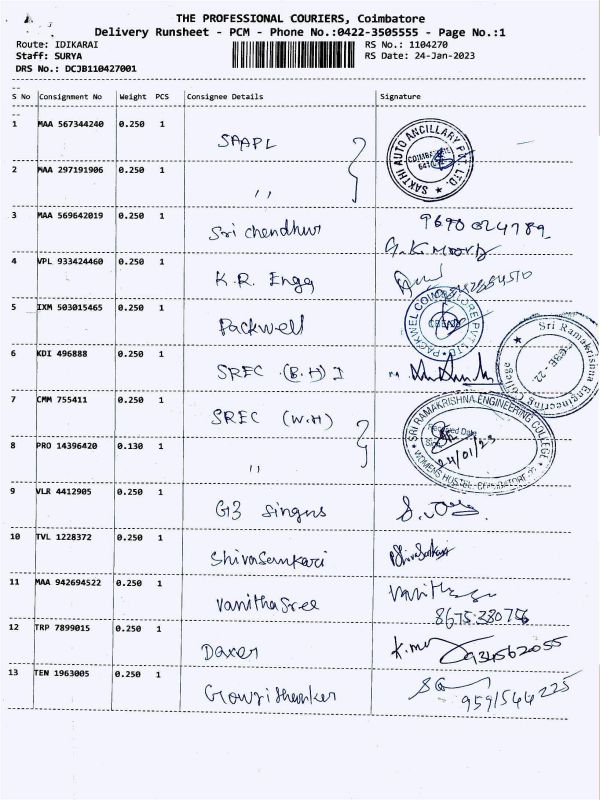 THE PROFESSIONAL COURIERS, Coimbatore
Delivery Runsheet - PCM - Phone No.:0422-3505555 - Page No.:1
Route: IDIKARAI RS No.: 1104270
Staff: SURYA RS Date: 24-Jan-2023
DRS No.: DCJB110427001
S No Consignment No Weight PCS Consignee Details Signature
1 MAA 567344240 0.250 1 SAAPL
SAKTHI AUTO ANCILLARY PVT. LTD.
2 MAA 297191906 0.250 1 ,,
3 MAA 569642019 0.250 1 Sri chendhur
4 VPL 933424460 0.250 1 K.R. Engg
5 IXM 503015465 0.250 1 Packwell
6 KDI 496888 0.250 1 SREC (B.H) I
Sri Ramakrishna Engineering College
7 CMM 755411 0.250 1 SREC (W.H)
SRI RAMAKRISHNA ENGINEERING COLLEGE
24/01/23
WOMENS HOSTEL
8 PRO 14396420 0.130 1 ,,
9 VLR 4412905 0.250 1 G3
10 TVL 1228372 0.250 1 Shivasankari
11 MAA 942694522 0.250 1 Vanitha Sree
8675380756
12 TRP 7899015 0.250 1
13 TEN 1963005 0.250 1 Gowrishanker
9591544225